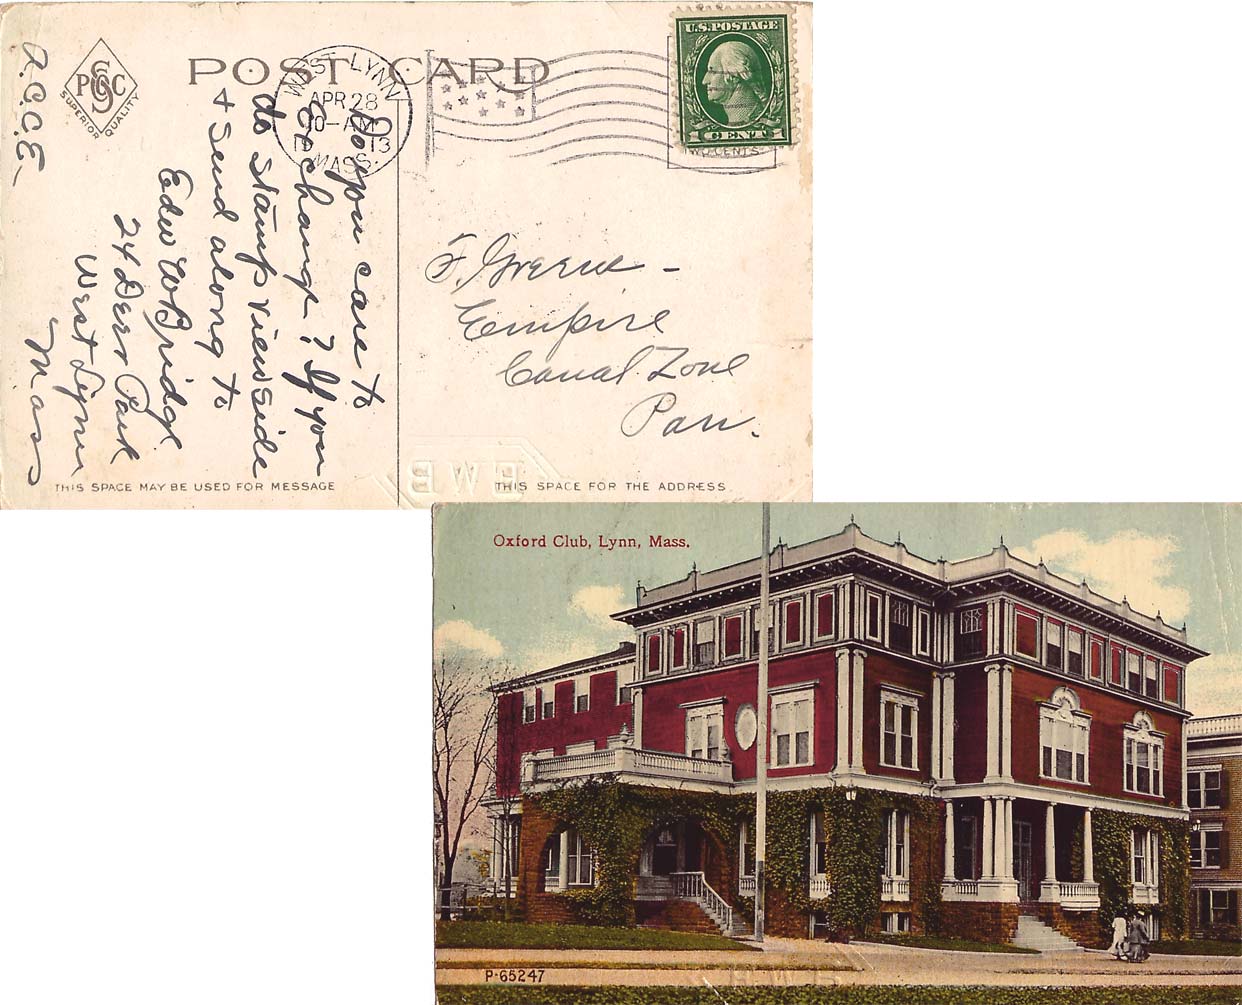 POST CARD
P S C
SUPERIOR QUALITY
WEST LYNN
APR 28
10-AM
1913
MASS.
U.S. POSTAGE
1 CENT 1
TWO CENTS
Do you care to
Exchange? If you
do stamp view side
+ send along to
Edw W Bridge
24 Deer Park
West Lynn
Mass
F. Greene -
Empire
Canal Zone
Pan.
BWB
THIS SPACE MAY BE USED FOR MESSAGE
THIS SPACE FOR THE ADDRESS
Oxford Club, Lynn, Mass.
P-65247